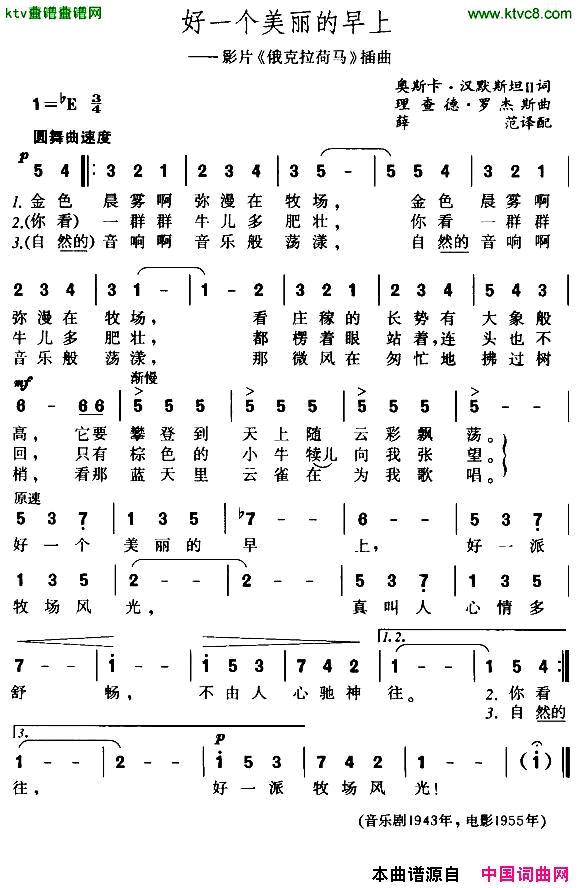 ktv查谱查谱网 www.ktvc8.com
好一个美丽的早上
——影片《俄克拉荷马》插曲
奥斯卡·汉默斯坦II词
1=♭E 3/4 理查德·罗杰斯曲
薛 范译配
圆舞曲速度
p
5 4 ‖: 3 2 1 | 3 2 1 | 2 3 4 | 5 - - | 5 5 4 | 3 2 1 |
1. 金色 晨雾啊 弥漫在 牧场， 金色 晨雾啊
2.(你看)一群群 牛儿多 肥壮， 你看 一群群
3.(自然的)音响啊 音乐般 荡漾， 自然的 音响啊
2 3 4 | 3 1 - | 1 - 2 | 3 2 1 | 2 3 4 | 5 4 5 |
弥漫在 牧场， 看 庄稼的 长势有 大象般
牛儿多 肥壮， 都 楞着眼 站着,连 头也不
音乐般 荡漾， 那 微风在 匆忙地 拂过树
mf 渐慢
6 - 66 | 5 5 5 | 5 5 5 | 5 5 5 | 5 - - |
高， 它要 攀登到 天上随 云彩飘 荡。
回，只有 棕色的 小牛犊儿 向我张 望。
梢，看那 蓝天里 云雀在 为我歌 唱。
原速
5 3 7 | 1 3 5 | ♭7 - - | 6 - - | 5 3 5 |
好一个 美丽的 早 上， 好一派
1 3 5 | 2 - - | 2 - - | 5 3 7 | 1 3 5 |
牧场风 光， 真叫人 心情多
1.2.
7 - - | i - - | i 5 3 | 7 4 2 | 1 - - | 1 5 4 :‖
舒 畅， 不由人 心驰神 往。 2.你看
3.自然的
3.
p
1 - - | 2 - - | i 5 3 | 7 4 2 | 1 - - | (i) - ‖
往， 好一派 牧场风 光！
(音乐剧1943年，电影1955年)
本曲谱源自 中国词曲网